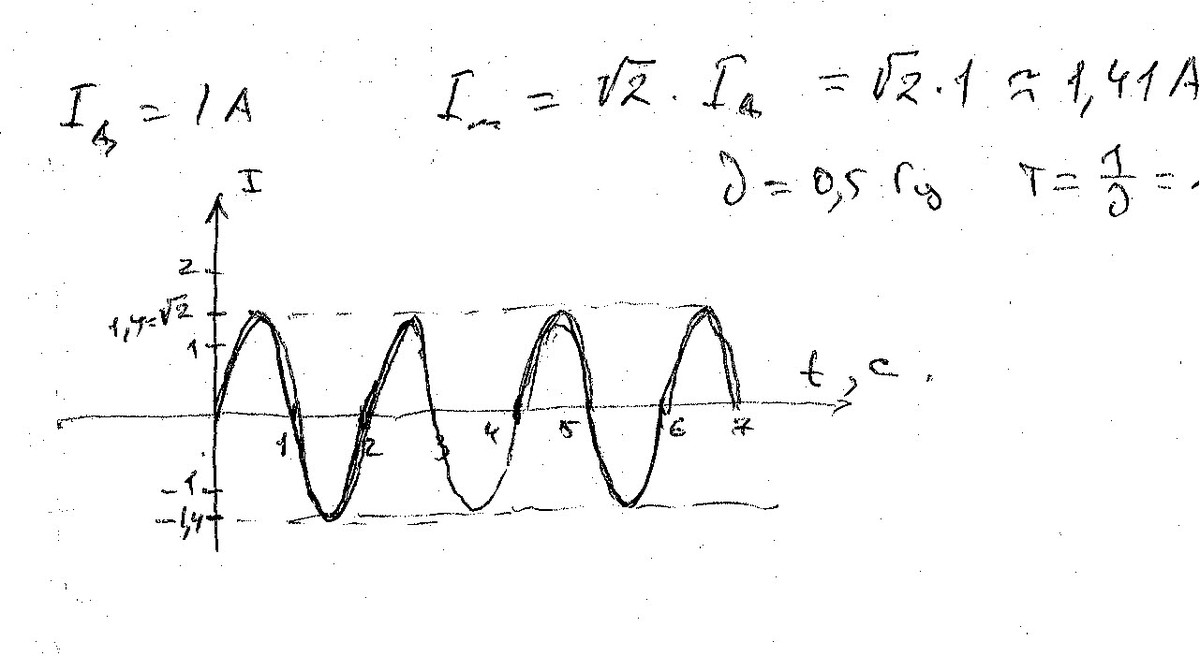 I_д = 1 A   I_m = √2 · I_д = √2 · 1 ≈ 1,41 A
ν = 0,5 Гц   T = 1/ν =
I
2
1,4=√2
1
t, c.
1 2 3 4 5 6 7
-1
-1,4